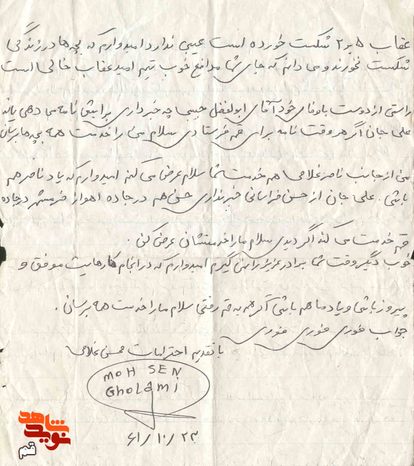 عقاب ۲ بر ۵ شکست خورده است عیبی ندارد امیدوارم که بچه ها در زندگی
شکست نخورند و می دانم که جای شما مدافع خوب تیم امید عقاب خالی است
راستی از دوست باوفای خود آقای ابوالفضل حبیبی چه خبر داری برایش نامه می دهی یا نه
علی جان اگر هر وقت نامه برای هم فرستادی سلام من را خدمت همه بچه ها برسان
من از جانب ناصر غلامی هم خدمت شما سلام عرض می کنم امیدوارم که یاد ناصر هم
باشی. علی جان از حسن خراسانی خبر نداری حسن هم در جاده اهواز خرمشهر در جاده
خدمت می کند اگر دیدی سلام ما را خدمتشان عرض کن.
خوب دیگر وقت شما برادر عزیز را نمی گیرم امیدوارم که در انجام کارهایت موفق و
پیروز باشی و یاد ما هم باشی اگر هم به قم رفتی سلام ما را خدمت همه برسان.
جواب فوری فوری فوری
با تقدیم احترامات محسن غلامی
MOHSEN
GHOLAMI
۶۱/۱۰/۲۳
نوید شاهد
قم